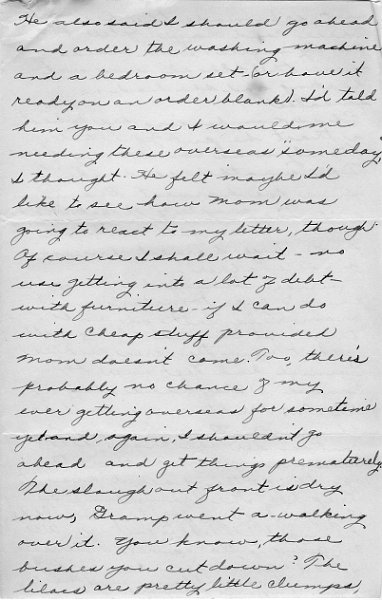 He also said I should go ahead
and order the washing machine
and a bedroom set - (or have it
ready on an order blank). I'd told
him you and I would me
needing these overseas "someday,
I thought. He felt maybe I'd
like to see how Mom was
going to react to my letter, though
Of course I shall wait - no
use getting into a lot of debt -
with furniture - if I can do
with cheap stuff provided
Mom doesn't come. Too, there's
probably no chance of my
ever getting overseas for sometime
yet and, again, I shouldn't go
ahead and get things prematurely.
The slough out front is dry
now, Gramp went a-walking
over it. You know, those
bushes you cut down? The
lilacs are pretty little clumps,